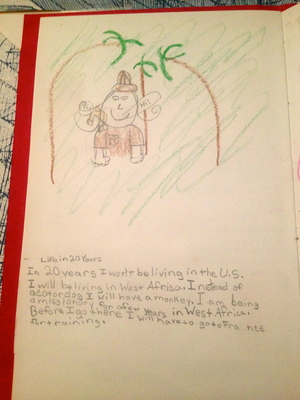 Hi!
Life in 20 Years
In 20 years I won't be living in the U.S.
I will be living in West Africa. Instead of
a cat or dog I will have a monkey. I am being
a missionary for a few years in West Africa.
Before I go there I will have to go to France
for training.